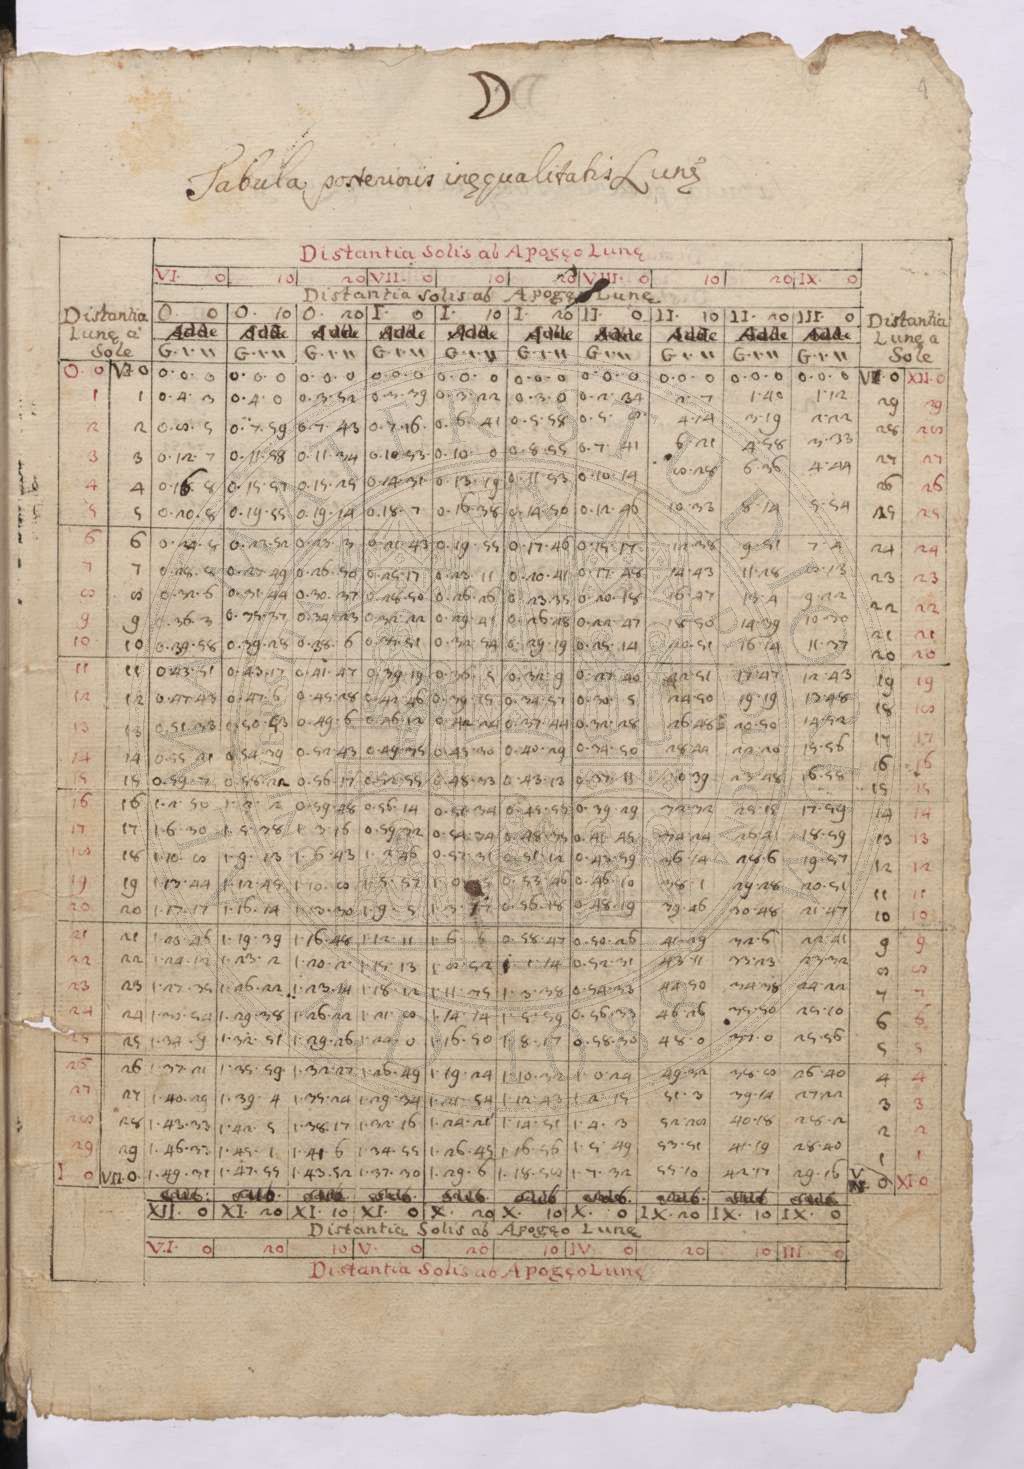 Tabula posterioris inęqualitatis Lunę
Distantia Solis ab Apogęo Lunę
VI. 0 10 20 VII. 0 10 20 VIII. 0 10 20 IX. 0
Distantia Solis ab Apogęo Lunę
Distantia Lunę a Sole O. 0 O. 10 O. 20 I. 0 I. 10 I. 20 II. 0 II. 10 II. 20 III. 0 Distantia Lunę a Sole
Adde Adde Adde Adde Adde Adde Adde Adde Adde Adde
G. ı ıı G. ı ıı G. ı ıı G. ı ıı G. ı ıı G. ı ıı G. ı ıı G. ı ıı G. ı ıı G. ı ıı
O. 0 VI. 0 0. 0. 0 0. 0. 0 0. 0. 0 0. 0. 0 0. 0. 0 0. 0. 0 0. 0. 0 0. 0. 0 0. 0. 0 0. 0. 0 XII. 0
1 1 0. 4. 3 0. 4. 0 0. 3. 52 0. 3. 39 0. 3. 22 0. 3. 0 0. 2. 34 2. 7 1. 40 1. 12 29 29
2 2 0. 8. 5 0. 7. 59 0. 7. 43 0. 7. 16 0. 6. 41 0. 5. 58 0. 5. 8 4. 14 3. 19 2. 22 28 28
3 3 0. 12. 7 0. 11. 58 0. 11. 34 0. 10. 53 0. 10. 0 0. 8. 55 0. 7. 41 6. 21 4. 58 3. 33 27 27
4 4 0. 16. 8 0. 15. 57 0. 15. 25 0. 14. 31 0. 13. 19 0. 11. 53 0. 10. 14 8. 28 6. 36 4. 44 26 26
5 5 0. 20. 8 0. 19. 55 0. 19. 14 0. 18. 7 0. 16. 38 0. 14. 50 0. 12. 46 10. 33 8. 14 5. 54 25 25
6 6 0. 23. 52 0. 23. 3 0. 21. 43 0. 19. 55 0. 17. 46 0. 15. 17 12. 38 9. 51 7. 4 24 24
7 7 0. 27. 49 0. 26. 50 0. 25. 17 0. 23. 11 0. 20. 41 0. 17. 48 14. 43 11. 28 8. 13 23 23
8 8 0. 32. 6 0. 31. 44 0. 30. 37 0. 28. 50 0. 26. 26 0. 23. 35 0. 20. 18 16. 47 13. 4 9. 22 22 22
9 9 0. 36. 3 0. 35. 37 0. 34. 23 0. 32. 22 0. 29. 41 0. 26. 28 0. 22. 47 18. 50 14. 39 10. 30 21 21
10 10 0. 39. 58 0. 39. 28 0. 38. 6 0. 32. 54 0. 29. 19 0. 25. 14 20. 51 16. 14 11. 37 20 20
11 11 0. 43. 51 0. 43. 17 0. 41. 47 0. 39. 19 0. 36. 5 0. 32. 9 0. 27. 40 22. 51 17. 47 12. 43 19 19
12 12 0. 47. 43 0. 47. 6 0. 45. 28 0. 42. 46 0. 39. 15 0. 34. 57 0. 30. 5 24. 50 19. 19 13. 48 18 18
13 13 0. 51. 33 0. 50. 53 0. 49. 6 0. 46. 12 0. 42. 24 0. 37. 44 0. 32. 28 26. 48 20. 50 14. 52 17 17
14 14 0. 55. 21 0. 54. 39 0. 52. 43 0. 49. 35 0. 45. 30 0. 40. 29 0. 34. 50 28. 44 22. 20 15. 56 16 16
15 15 0. 59. 7 0. 58. 22 0. 56. 17 0. 52. 55 0. 48. 33 0. 43. 13 0. 37. 11 30. 39 23. 48 16. 58 15 15
16 16 1. 2. 50 1. 2. 2 0. 59. 48 0. 56. 14 0. 51. 34 0. 45. 53 0. 39. 29 32. 32 25. 15 17. 59 14 14
17 17 1. 6. 30 1. 5. 38 1. 3. 16 0. 59. 32 0. 54. 34 0. 48. 33 0. 41. 45 34. 24 26. 41 18. 59 13 13
18 18 1. 10. 8 1. 9. 13 1. 6. 43 1. 2. 46 0. 57. 31 0. 51. 12 0. 43. 59 36. 14 28. 6 19. 57 12 12
19 19 1. 13. 44 1. 12. 45 1. 10. 8 1. 5. 57 0. 53. 46 0. 46. 10 38. 1 29. 28 20. 51 11 11
20 20 1. 17. 17 1. 16. 14 1. 13. 30 1. 9. 5 0. 56. 18 0. 48. 19 39. 46 30. 48 21. 47 10 10
21 21 1. 20. 46 1. 19. 39 1. 16. 48 1. 12. 11 0. 58. 47 0. 50. 26 41. 29 32. 6 22. 41 9 9
22 22 1. 24. 12 1. 23. 2 1. 20. 2 1. 15. 13 1. 8. 52 1. 1. 14 0. 52. 31 43. 11 33. 23 23. 32 8 8
23 23 1. 27. 35 1. 26. 22 1. 23. 14 1. 18. 12 1. 11. 35 1. 3. 38 0. 54. 33 44. 50 34. 38 24. 22 7 7
24 24 1. 30. 54 1. 29. 38 1. 26. 22 1. 21. 8 1. 14. 14 1. 5. 59 0. 56. 33 46. 26 35. 50 25. 10 6 6
25 25 1. 34. 9 1. 32. 51 1. 29. 26 1. 24. 0 1. 16. 50 1. 8. 17 0. 58. 30 48. 0 37. 0 25. 56 5 5
26 26 1. 37. 21 1. 35. 59 1. 32. 27 1. 26. 49 1. 19. 24 1. 10. 32 1. 0. 24 49. 32 38. 8 26. 40 4 4
27 27 1. 40. 29 1. 39. 4 1. 35. 24 1. 29. 34 1. 21. 54 1. 12. 43 1. 2. 15 51. 3 39. 14 27. 22 3 3
28 28 1. 43. 33 1. 42. 5 1. 38. 17 1. 32. 16 1. 24. 21 1. 14. 51 1. 4. 3 40. 18 28. 2 2 2
29 29 1. 46. 33 1. 45. 1 1. 41. 6 1. 34. 55 1. 26. 45 1. 16. 56 1. 5. 49 53. 51 41. 19 28. 40 1 1
I. 0 VII. 0 1. 49. 31 1. 47. 55 1. 43. 52 1. 37. 30 1. 29. 6 1. 18. 58 1. 7. 32 55. 10 42. 17 29. 16 XI. 0
XII. 0 XI. 20 XI. 10 XI. 0 X. 20 X. 10 X. 0 IX. 20 IX. 10 IX. 0
Distantia Solis ab Apogęo Lunę
VI. 0 20 10 V. 0 20 10 IV. 0 20 10 III. 0
Distantia Solis ab Apogęo Lunę